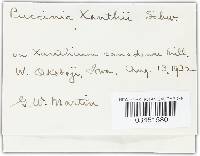 Puccinia Xanthii Schw.
on Xanthium canadense Mill.
W. Okoboji, Iowa. Aug. 13, 1932
G. W. Martin